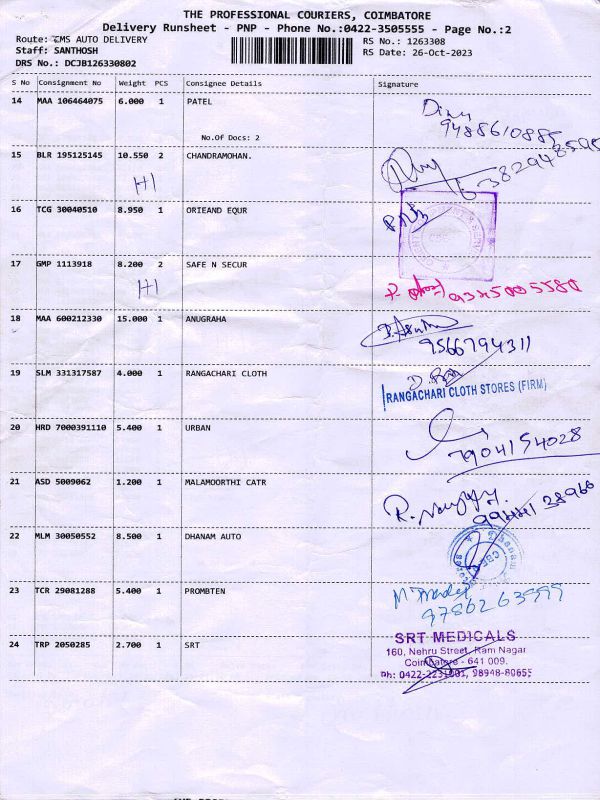 THE PROFESSIONAL COURIERS, COIMBATORE
Delivery Runsheet - PNP - Phone No.:0422-3505555 - Page No.:2
Route: CMS AUTO DELIVERY
RS No.: 1263308
Staff: SANTHOSH
RS Date: 26-Oct-2023
DRS No.: DCJB126330802
S No Consignment No Weight PCS Consignee Details Signature
14 MAA 106464075 6.000 1 PATEL
9488610885
No.Of Docs: 2
15 BLR 195125145 10.550 2 CHANDRAMOHAN.
6382948595
H1
16 TCG 30040510 8.950 1 ORIEAND EQUR
17 GMP 1113918 8.200 2 SAFE N SECUR
H1
18 MAA 600212330 15.000 1 ANUGRAHA
9566794311
19 SLM 331317587 4.000 1 RANGACHARI CLOTH
RANGACHARI CLOTH STORES (FIRM)
20 HRD 7000391110 5.400 1 URBAN
7904154028
21 ASD 5009062 1.200 1 MALAMOORTHI CATR
22 MLM 30050552 8.500 1 DHANAM AUTO
23 TCR 29081288 5.400 1 PROMBTEN
24 TRP 2050285 2.700 1 SRT
SRT MEDICALS
160, Nehru Street, Ram Nagar
Coimbatore - 641 009.
Ph: 0422-2231001, 98948-80655